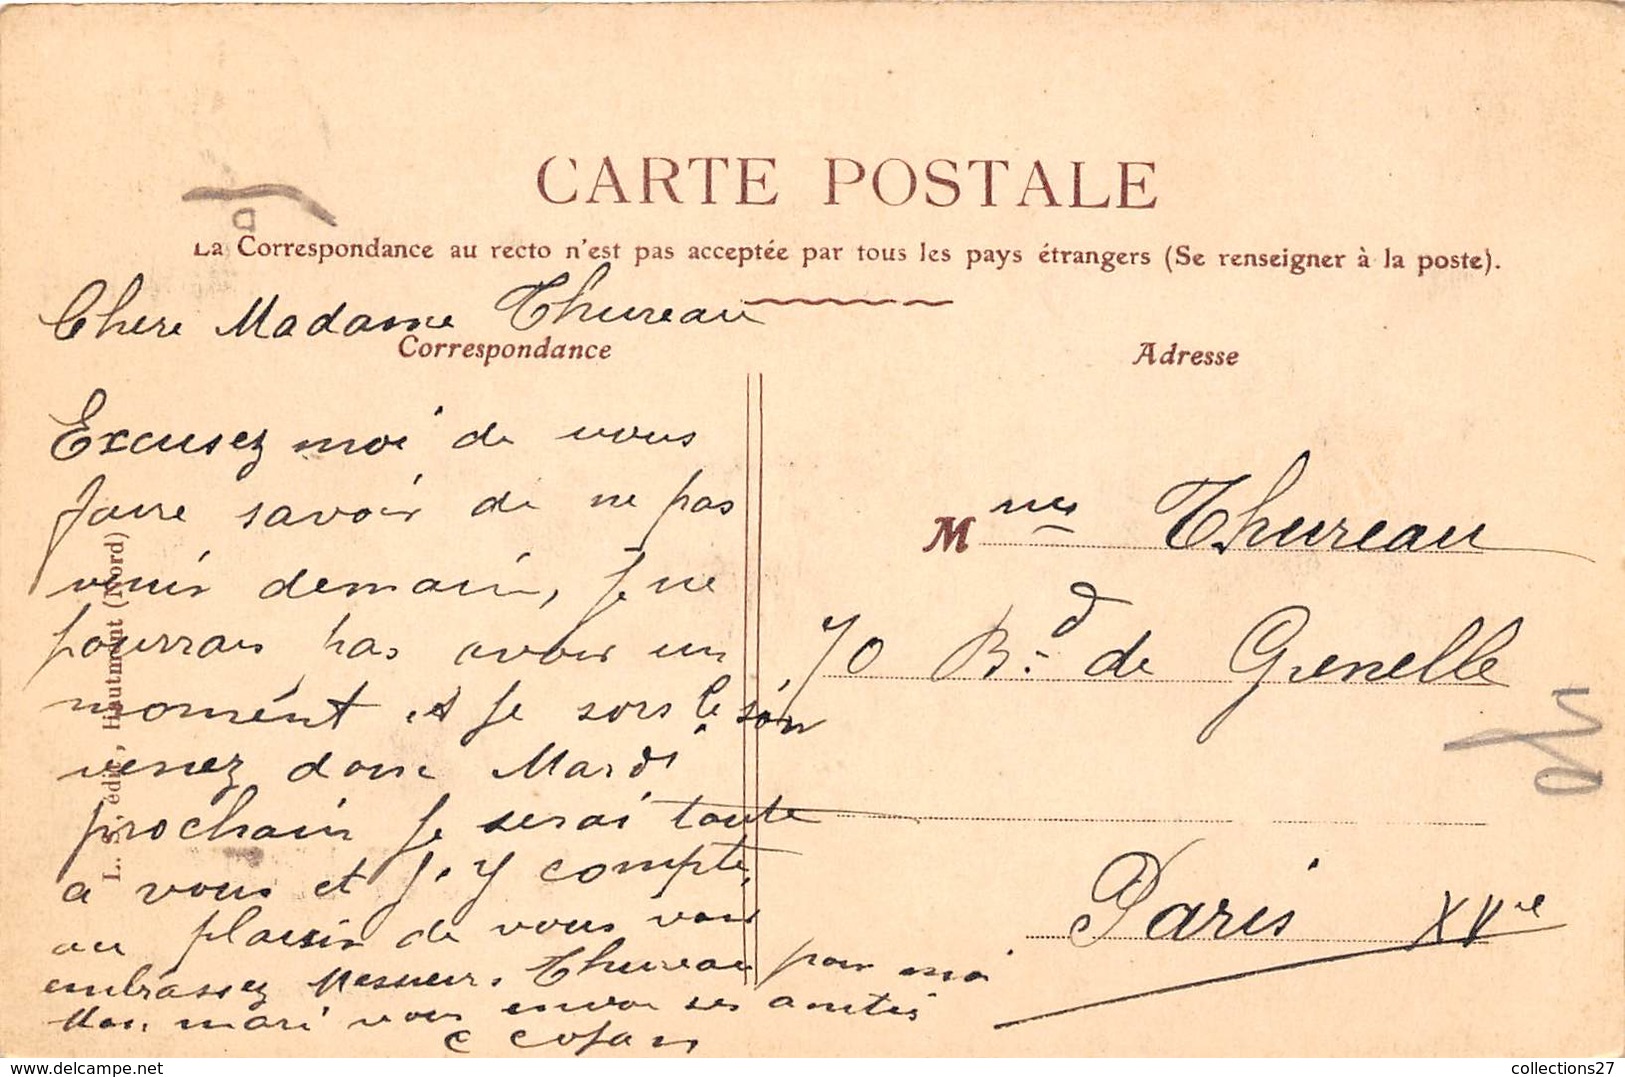 CARTE POSTALE
La Correspondance au recto n'est pas acceptée par tous les pays étrangers (Se renseigner à la poste).
Chere Madame Thureau
Correspondance
Excusez moi de vous
faire savoir de ne pas
venir demain, je ne
pourrai pas avoir un
moment et je sors le soir
venez donc Mardi
prochain je serai toute
a vous et j'y compte,
au plaisir de vous voir
embrassez Thureau pour moi
Mon mari vous envoi ses amitiés
L. S. édit., Hautmont (Nord)
Adresse
Mme Thureau
70 Bd de Grenelle
Paris XVe
collections27